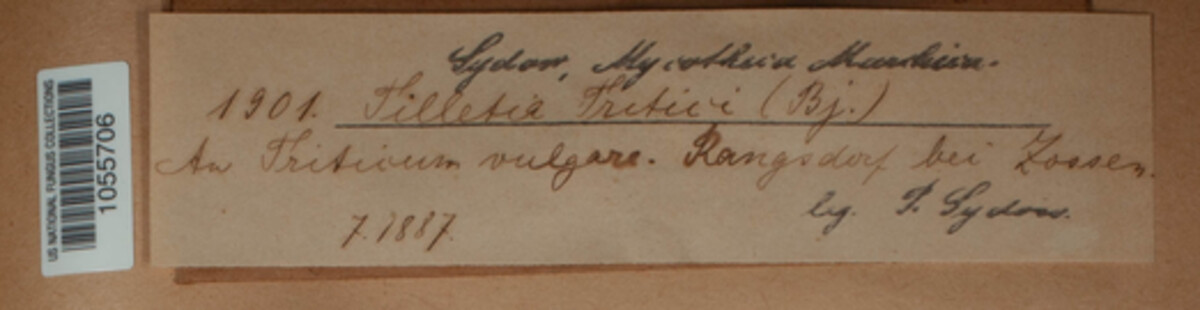 US NATIONAL FUNGUS COLLECTIONS
1055706
Sydow, Mycotheca Marchica.
1901. Tilletia Tritici (Bj.)
An Triticum vulgare. Rangsdorf bei Zossen.
7.1887.
leg. P. Sydow.